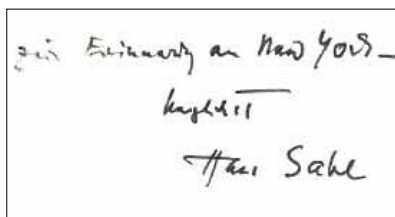 zur Erinnerung an New York –
herzlichst
Hans Sahl